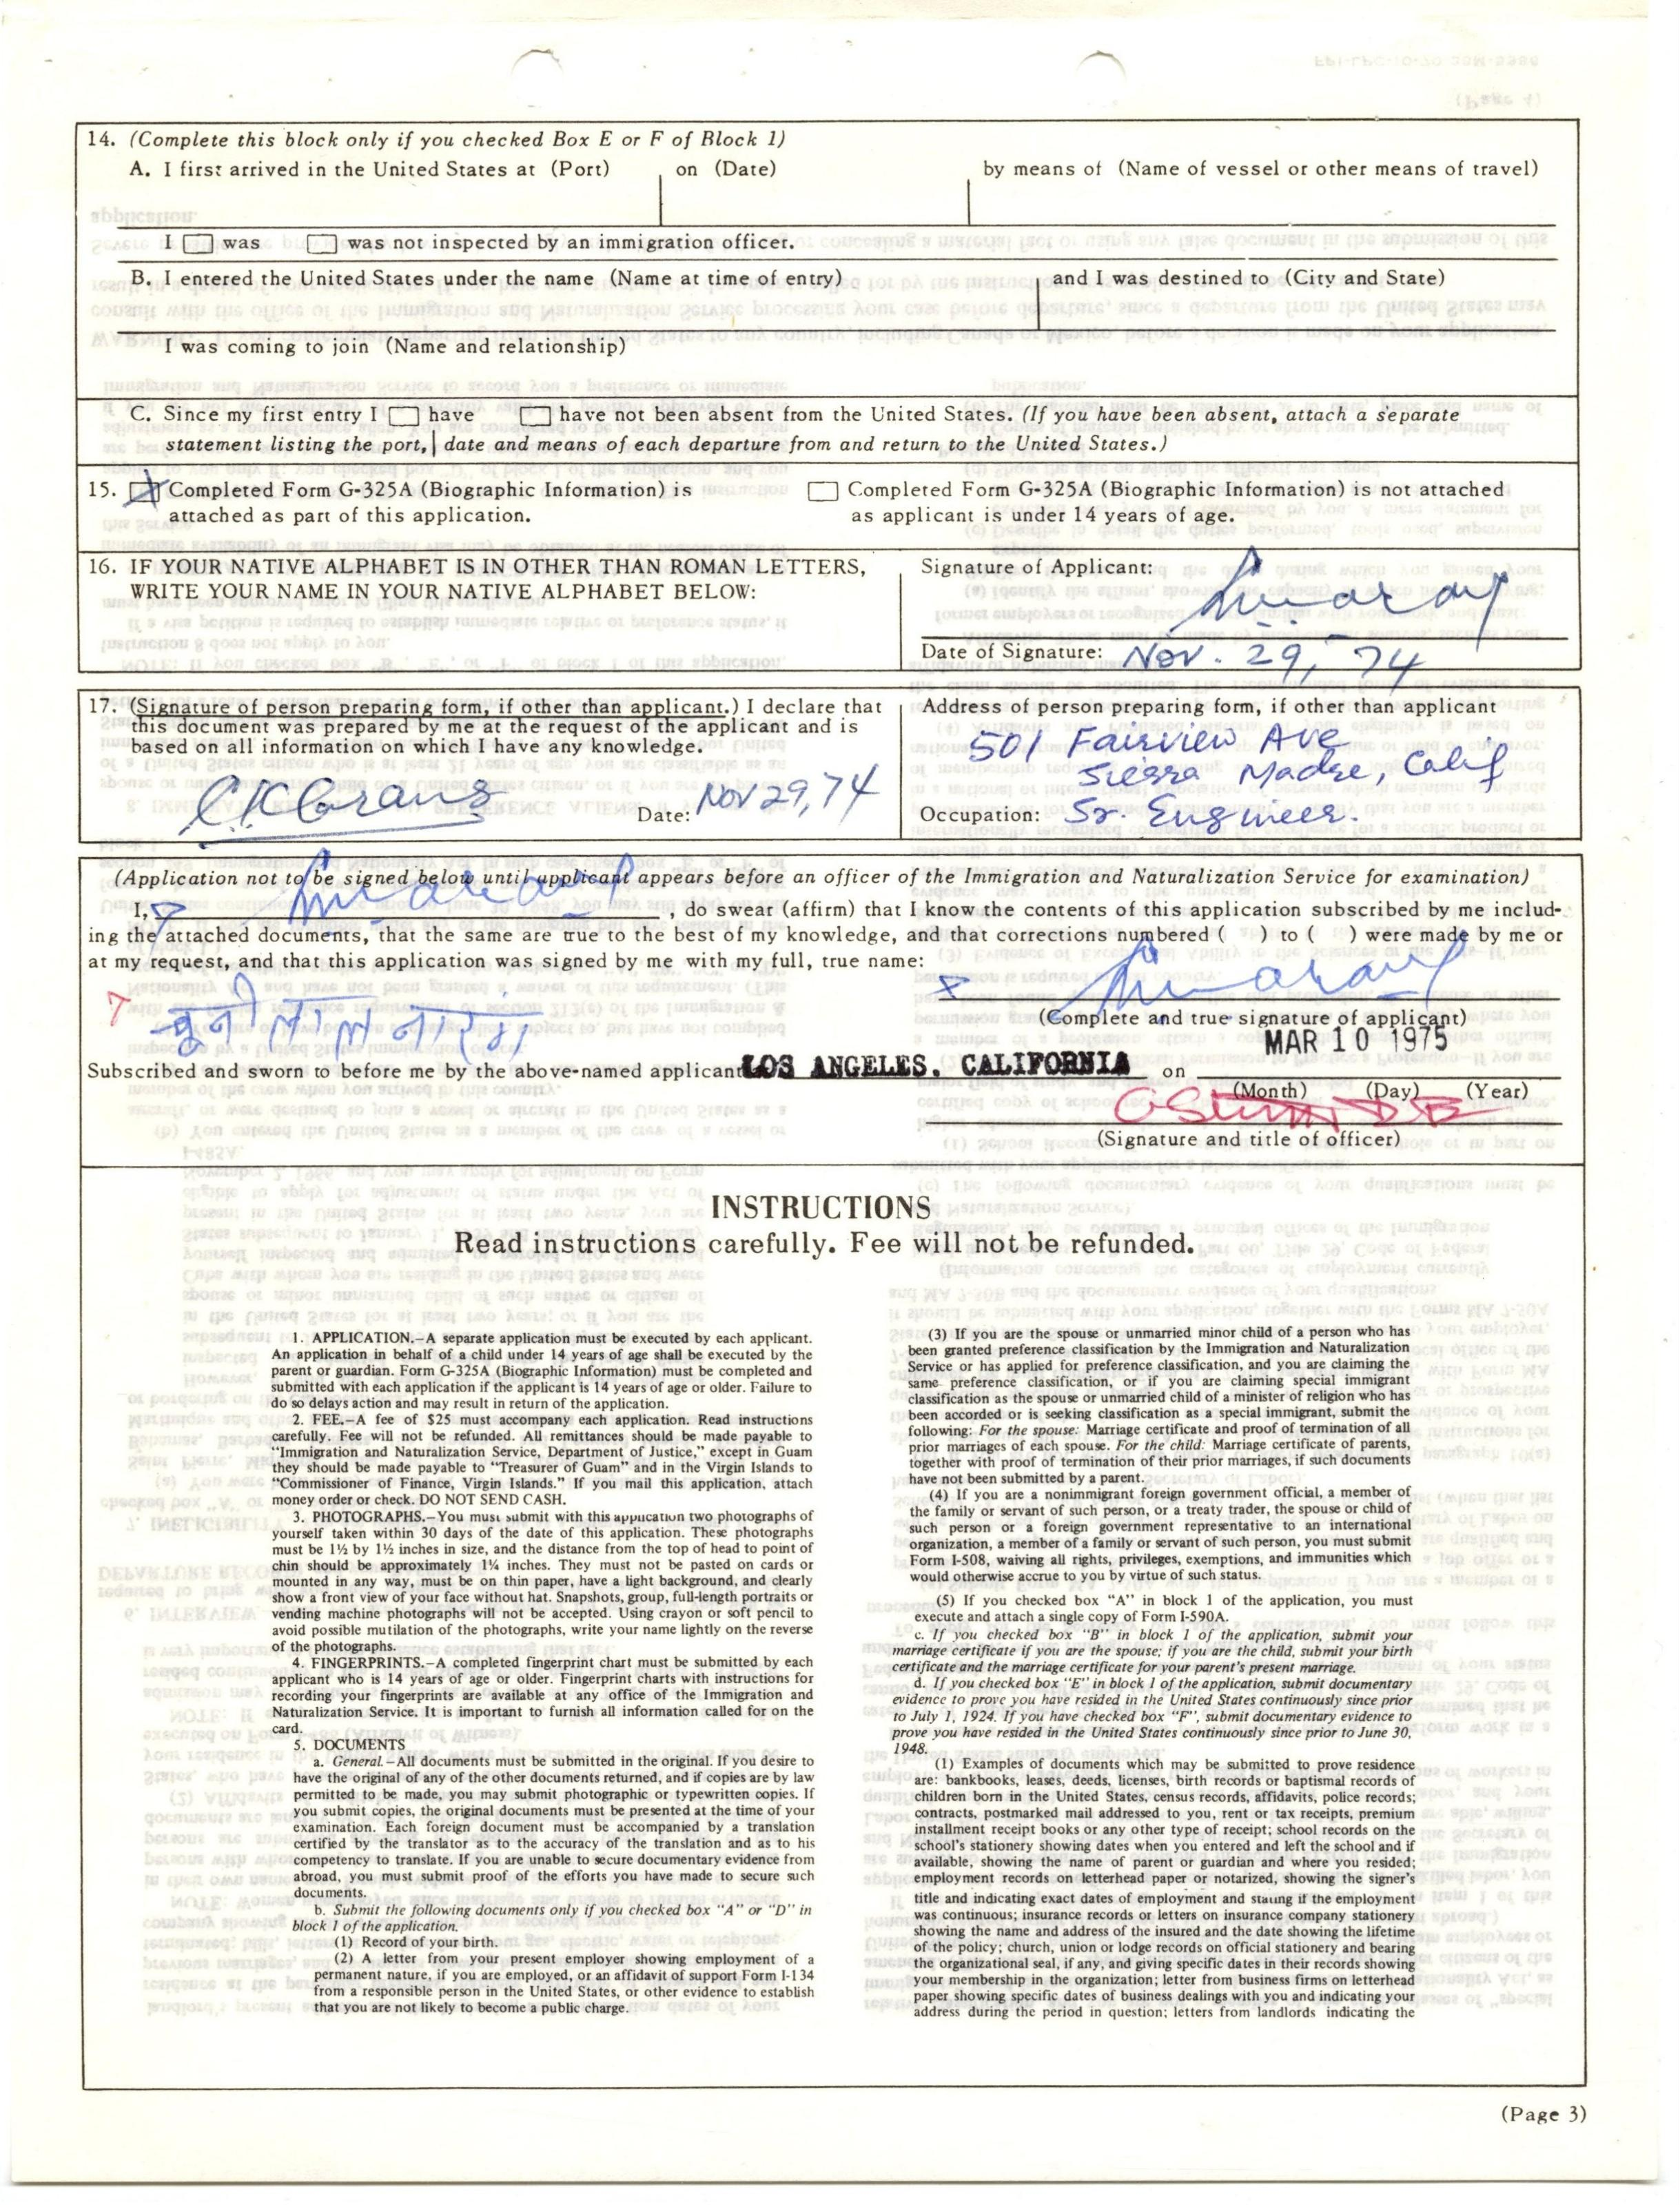 14. (Complete this block only if you checked Box E or F of Block 1)
A. I first arrived in the United States at (Port) on (Date) by means of (Name of vessel or other means of travel)
I was was not inspected by an immigration officer.
B. I entered the United States under the name (Name at time of entry) and I was destined to (City and State)
I was coming to join (Name and relationship)
C. Since my first entry I have have not been absent from the United States. (If you have been absent, attach a separate
statement listing the port, date and means of each departure from and return to the United States.)
15. Completed Form G-325A (Biographic Information) is
attached as part of this application.
Completed Form G-325A (Biographic Information) is not attached
as applicant is under 14 years of age.
16. IF YOUR NATIVE ALPHABET IS IN OTHER THAN ROMAN LETTERS,
WRITE YOUR NAME IN YOUR NATIVE ALPHABET BELOW:
Signature of Applicant:
Date of Signature: Nov. 29, 74
17. (Signature of person preparing form, if other than applicant.) I declare that
this document was prepared by me at the request of the applicant and is
based on all information on which I have any knowledge.
Date: Nov 29, 74
Address of person preparing form, if other than applicant
501 Fairview Ave
Sierra Madre, Calif
Occupation: Sr. Engineer.
(Application not to be signed below until applicant appears before an officer of the Immigration and Naturalization Service for examination)
I, , do swear (affirm) that I know the contents of this application subscribed by me includ-
ing the attached documents, that the same are true to the best of my knowledge, and that corrections numbered ( ) to ( ) were made by me or
at my request, and that this application was signed by me with my full, true name:
चुनी लाल नारंग
(Complete and true signature of applicant)
MAR 10 1975
Subscribed and sworn to before me by the above-named applicant LOS ANGELES, CALIFORNIA on
(Month) (Day) (Year)
(Signature and title of officer)
INSTRUCTIONS
Read instructions carefully. Fee will not be refunded.
1. APPLICATION.—A separate application must be executed by each applicant.
An application in behalf of a child under 14 years of age shall be executed by the
parent or guardian. Form G-325A (Biographic Information) must be completed and
submitted with each application if the applicant is 14 years of age or older. Failure to
do so delays action and may result in return of the application.
2. FEE.—A fee of $25 must accompany each application. Read instructions
carefully. Fee will not be refunded. All remittances should be made payable to
"Immigration and Naturalization Service, Department of Justice," except in Guam
they should be made payable to "Treasurer of Guam" and in the Virgin Islands to
"Commissioner of Finance, Virgin Islands." If you mail this application, attach
money order or check. DO NOT SEND CASH.
3. PHOTOGRAPHS.—You must submit with this application two photographs of
yourself taken within 30 days of the date of this application. These photographs
must be 1½ by 1½ inches in size, and the distance from the top of head to point of
chin should be approximately 1¼ inches. They must not be pasted on cards or
mounted in any way, must be on thin paper, have a light background, and clearly
show a front view of your face without hat. Snapshots, group, full-length portraits or
vending machine photographs will not be accepted. Using crayon or soft pencil to
avoid possible mutilation of the photographs, write your name lightly on the reverse
of the photographs.
4. FINGERPRINTS.—A completed fingerprint chart must be submitted by each
applicant who is 14 years of age or older. Fingerprint charts with instructions for
recording your fingerprints are available at any office of the Immigration and
Naturalization Service. It is important to furnish all information called for on the
card.
5. DOCUMENTS
a. General.—All documents must be submitted in the original. If you desire to
have the original of any of the other documents returned, and if copies are by law
permitted to be made, you may submit photographic or typewritten copies. If
you submit copies, the original documents must be presented at the time of your
examination. Each foreign document must be accompanied by a translation
certified by the translator as to the accuracy of the translation and as to his
competency to translate. If you are unable to secure documentary evidence from
abroad, you must submit proof of the efforts you have made to secure such
documents.
b. Submit the following documents only if you checked box "A" or "D" in
block 1 of the application.
(1) Record of your birth.
(2) A letter from your present employer showing employment of a
permanent nature, if you are employed, or an affidavit of support Form I-134
from a responsible person in the United States, or other evidence to establish
that you are not likely to become a public charge.
(3) If you are the spouse or unmarried minor child of a person who has
been granted preference classification by the Immigration and Naturalization
Service or has applied for preference classification, and you are claiming the
same preference classification, or if you are claiming special immigrant
classification as the spouse or unmarried child of a minister of religion who has
been accorded or is seeking classification as a special immigrant, submit the
following: For the spouse: Marriage certificate and proof of termination of all
prior marriages of each spouse. For the child: Marriage certificate of parents,
together with proof of termination of their prior marriages, if such documents
have not been submitted by a parent.
(4) If you are a nonimmigrant foreign government official, a member of
the family or servant of such person, or a treaty trader, the spouse or child of
such person or a foreign government representative to an international
organization, a member of a family or servant of such person, you must submit
Form I-508, waiving all rights, privileges, exemptions, and immunities which
would otherwise accrue to you by virtue of such status.
(5) If you checked box "A" in block 1 of the application, you must
execute and attach a single copy of Form I-590A.
c. If you checked box "B" in block 1 of the application, submit your
marriage certificate if you are the spouse; if you are the child, submit your birth
certificate and the marriage certificate for your parent's present marriage.
d. If you checked box "E" in block 1 of the application, submit documentary
evidence to prove you have resided in the United States continuously since prior
to July 1, 1924. If you have checked box "F", submit documentary evidence to
prove you have resided in the United States continuously since prior to June 30,
1948.
(1) Examples of documents which may be submitted to prove residence
are: bankbooks, leases, deeds, licenses, birth records or baptismal records of
children born in the United States, census records, affidavits, police records;
contracts, postmarked mail addressed to you, rent or tax receipts, premium
installment receipt books or any other type of receipt; school records on the
school's stationery showing dates when you entered and left the school and if
available, showing the name of parent or guardian and where you resided;
employment records on letterhead paper or notarized, showing the signer's
title and indicating exact dates of employment and stating if the employment
was continuous; insurance records or letters on insurance company stationery
showing the name and address of the insured and the date showing the lifetime
of the policy; church, union or lodge records on official stationery and bearing
the organizational seal, if any, and giving specific dates in their records showing
your membership in the organization; letter from business firms on letterhead
paper showing specific dates of business dealings with you and indicating your
address during the period in question; letters from landlords indicating the
(Page 3)